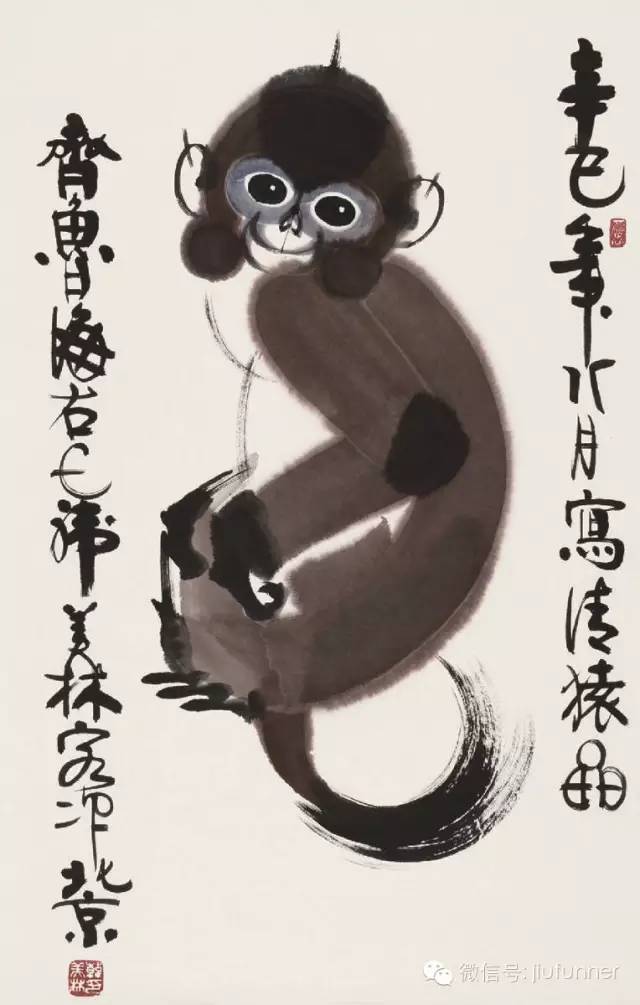 辛巳年八月寫清猿
齊魯海右 美林客次北京
微信号: jiufunner